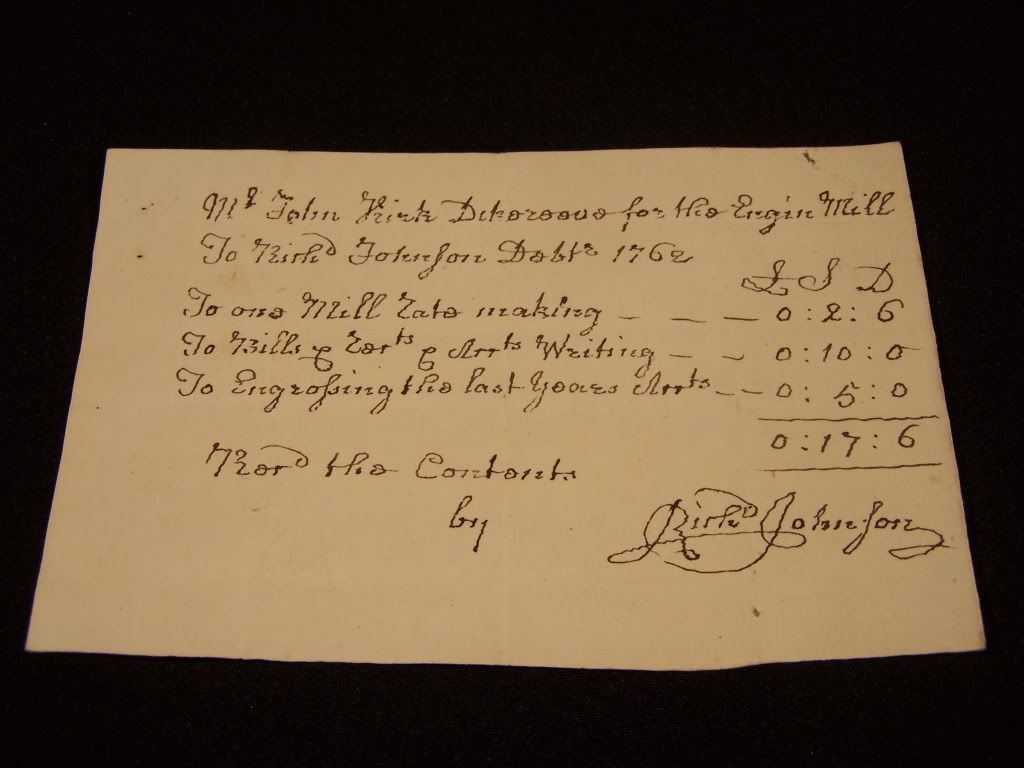 Mr John Kirk Dikereeve for the Engin Mill
To Richd Johnson Debtr 1762
£ S D
To one Mill Rate making – – – 0 : 2 : 6
To Bills & Rects & Accts Writing – – 0 : 10 : 0
To Engrossing the last Years Accts – – 0 : 5 : 0
0 : 17 : 6
Recd the Contents
by Richd Johnson